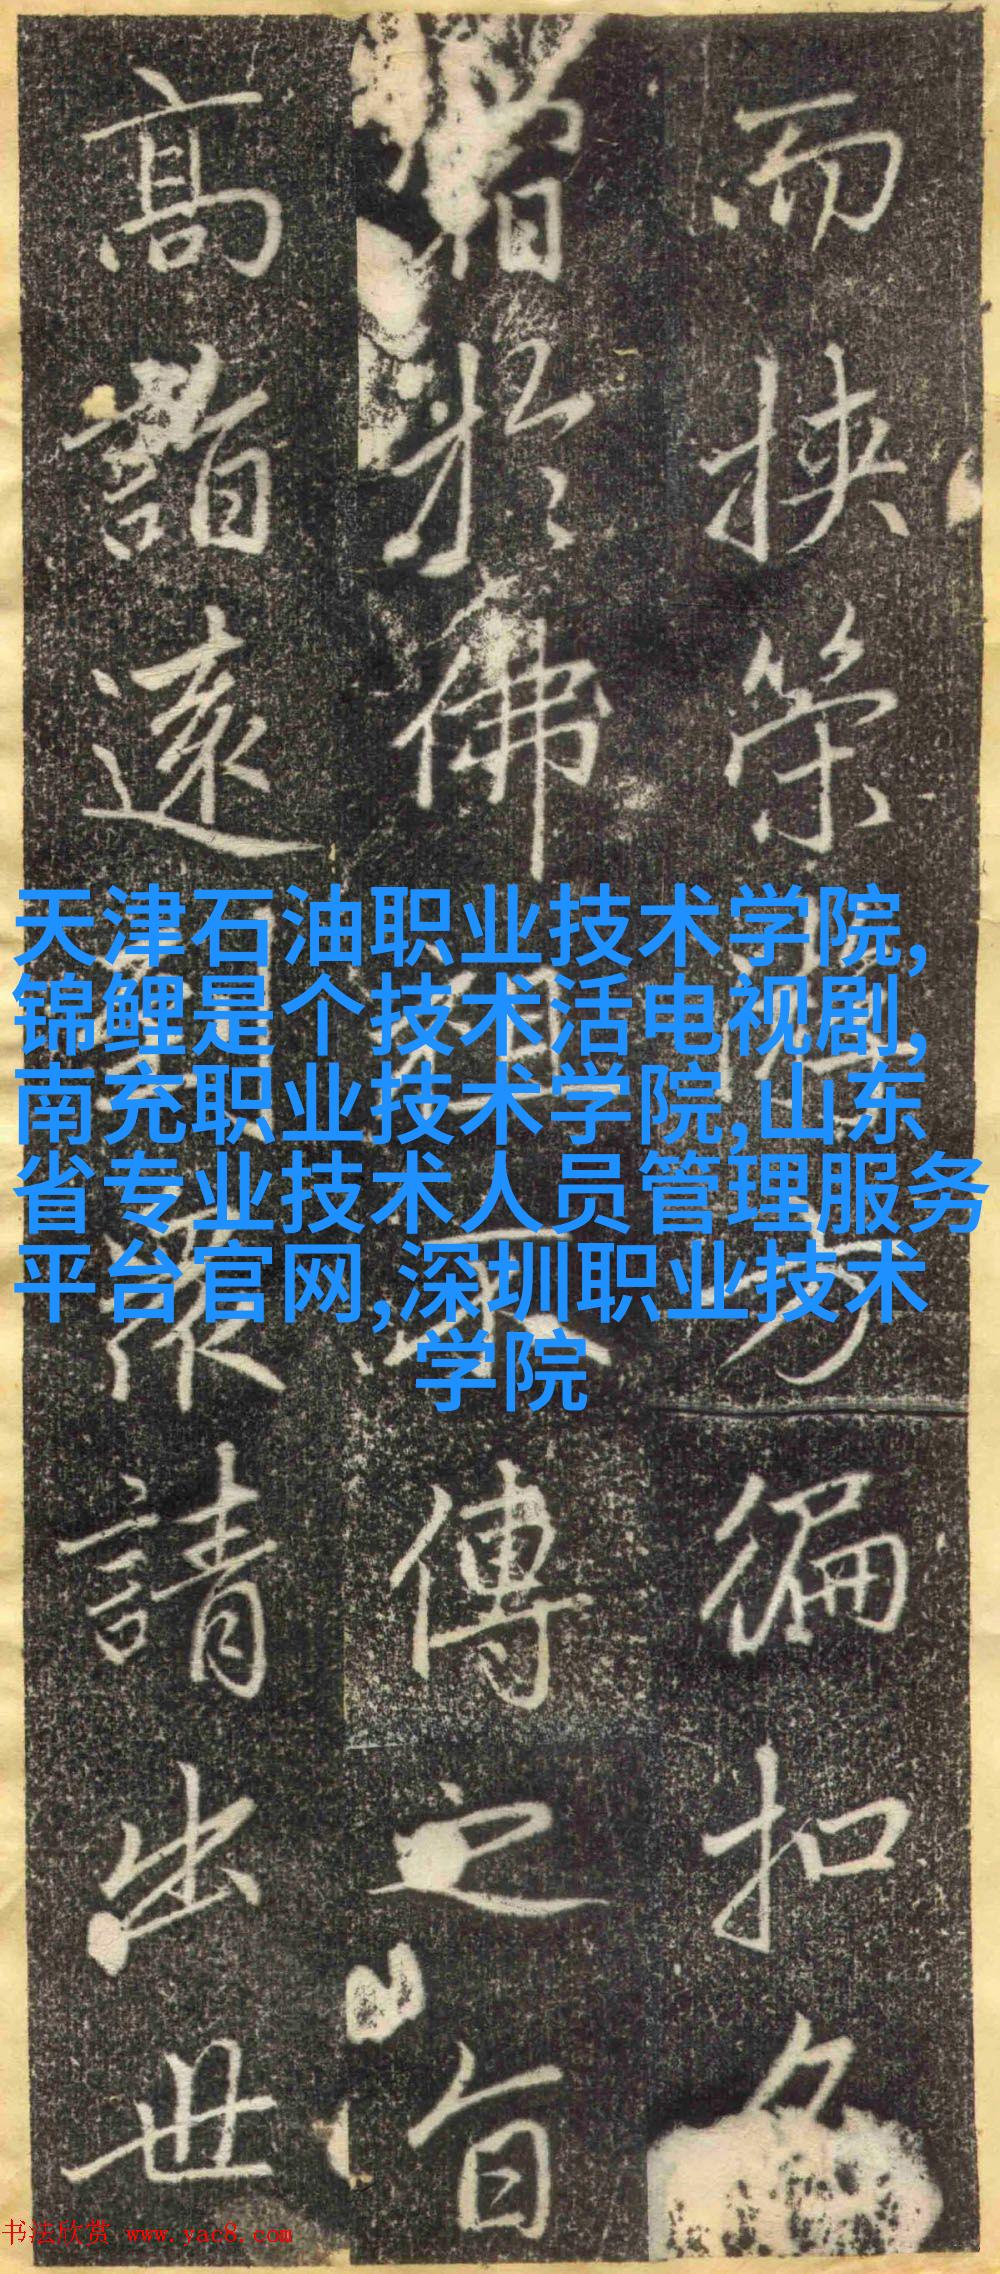 而挟策方徧扣
於佛不傳之旨
高遠懷請出世
天津石油职业技术学院,
锦鲤是个技术活电视剧,
南充职业技术学院,山东
省专业技术人员管理服务
平台官网,深圳职业技术
学院
书法欣赏 www.yac8.com